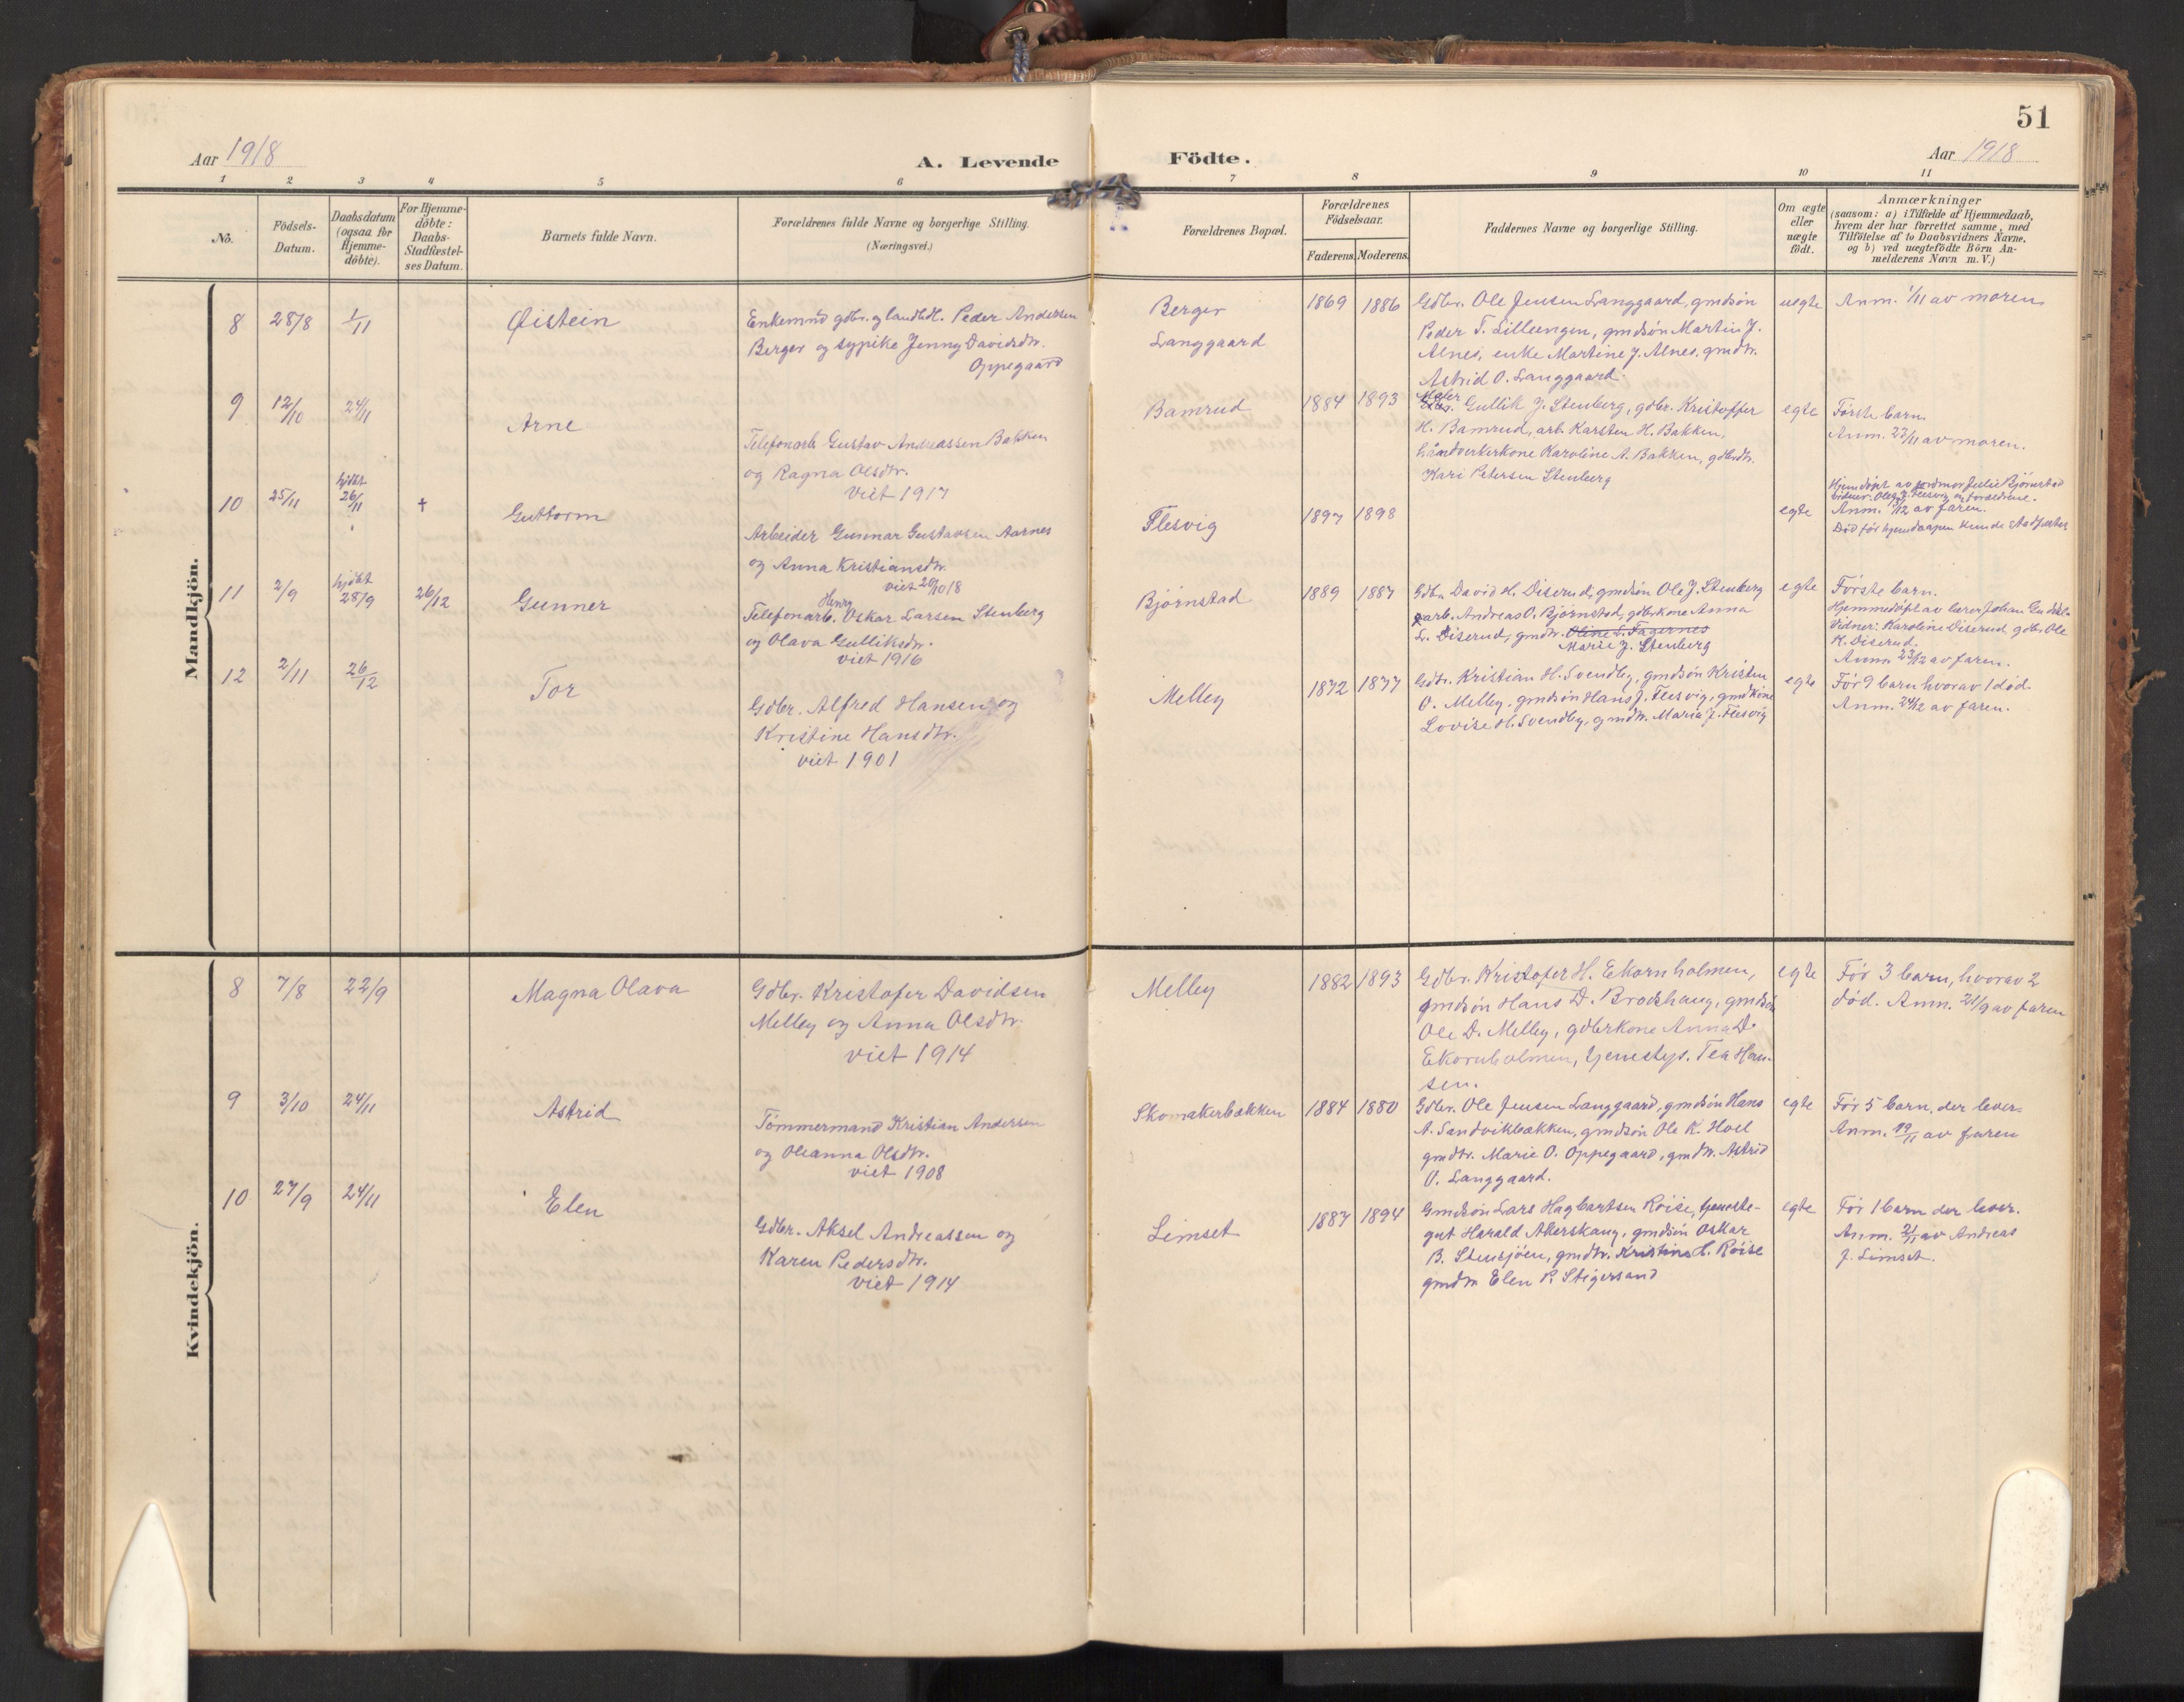 51
Aar 1918
A. Levende
Födte.
Aar 1918
1 2 3 4 5 6 7 8 9 10 11
No.
Födsels-
Datum.
Daabsdatum
(ogsaa for
Hjemme-
döbte).
For Hjemme-
döbte:
Daabs-
Stadfæstel-
ses Datum.
Barnets fulde Navn.
Forældrenes fulde Navne og borgerlige Stilling.
(Næringsvei.)
Forældrenes Bopæl.
Forældrenes
Födselsaar.
Faderens. Moderens.
Faddernes Navne og borgerlige Stilling.
Om ægte
eller
uægte
födt.
Anmærkninger
(saasom: a) i Tilfælde af Hjemmedaab,
hvem der har forrettet samme, med
Tilföielse af to Daabsvidners Navne,
og b) ved uægtefödte Börn An-
melderens Navn m. V.)
Mandkjön.
8 28/8 1/11 Øistein
Enkemnd gdbr. og landhdl. Peder Andersen
Berger og sypike Jenny Davidsdtr.
Oppegaard
Berger
Langgaard
1869 1886
Gdbr. Ole Jensen Langgaard, gmdsøn
Peder T. Lilleengen, gmdsøn Martin J.
Alnes, enke Martine J. Alnes, gmdtr.
Astrid O. Langgaard.
uegte
Anm. 1/11 av moren
9 12/10 24/11 Arne
Telefonarb. Gustav Andreassen Bakken
og Ragna Olsdtr.
viet 1917
Bamrud
1884 1893
Maler
Gullik J. Stenberg, gdbr. Kristoffer
H. Bamrud, arb. Karsten H. Bakken,
håndverkerkone Karoline A. Bakken, gdbrdtr.
Kari Petersen Stenberg
egte
Første barn.
Anm. 23/11 av moren.
10 25/11
hjdøt
26/11
†
Guttorm
Arbeider Gunnar Gustavsen Aarnes
og Anna Kristiansdtr.
viet 20/10 18
Flesvig
1897 1898
egte
Hjemdøpt av jordmor Julie Bjørnstad
vidner: Oleg J. Flesvig og forældrene.
Anm. 1/12 av faren.
Død før hjemdaapen kunde stadfæstes
11 2/9
hjdøt
28/9
26/12
Gunner
Henry
Telefonarb. Oskar Larsen Stenberg
og Olava Gulliksdtr.
viet 1916
Bjørnstad
1889 1887
Gdbr. David H. Diserud, gmdsøn Ole J. Stenberg
arb. Andreas O. Bjørnstad, gdbrkone Anna
L. Diserud, gmdtr. Oline L. Fagernes
Marie J. Stenberg
egte
Første barn.
Hjemmedøpt av lærer Johan
Vidner: Karoline Diserud, gdbr. Ole
K. Diserud.
Anm. 23/12 av faren.
12 2/11 26/12 Tor
Gdbr. Alfred Hansen og
Kristine Hansdtr.
viet 1901
Melley
1872 1877
Gdbr. Kristian H. Svendby, gmdsøn Kristen
O. Melley, gmdsøn Hans J. Flesvig, gmdkone
Lovise H. Svendby, gmdtr. Maria J. Flesvig
egte
Før 9 barn hvorav 1 død.
Anm. 24/12 av faren.
Kvindekjön.
8 7/8 22/9 Magna Olava
Gdbr. Kristofer Davidsen
Melley og Anna Olsdtr.
viet 1914
Melley
1882 1893
Gdbr. Kristofer H. Ekornholmen,
gmdsøn Hans D. Brodshaug, gmdsøn
Ole D. Melley, gdbrkone Anna D.
Ekornholmen, tjenestep. Tea Han-
sen.
egte
Før 3 barn, hvorav 2
død. Anm. 21/9 av faren
9 3/10 24/11 Astrid
Tømmermand Kristian Andersen
og Oleanna Olsdtr.
viet 1908
Skomakerbakken
1884 1880
Gdbr. Ole Jensen Langgaard, gmdsøn Hans
A. Sandvikbakken, gmdsøn Ole K. Hoel
gmdtr. Marie O. Oppegaard, gmdtr. Astrid
O. Langgaard.
egte
Før 5 barn, der lever.
Anm. 19/11 av faren
10 27/9 24/11 Elen
Gdbr. Aksel Andreassen og
Karen Pedersdtr.
viet 1914
Limset
1887 1894
Gmdsøn Lars Hagbartsen Røise, tjeneste-
gut Harald Akerskaug, gmdsøn Oskar
B. Stensjøen, gmdtr. Kristine H. Røise
gmdtr Elen P. Stigersand
egte
Før 1 barn der lever.
Anm. 21/11 av Andreas
J. Limset.